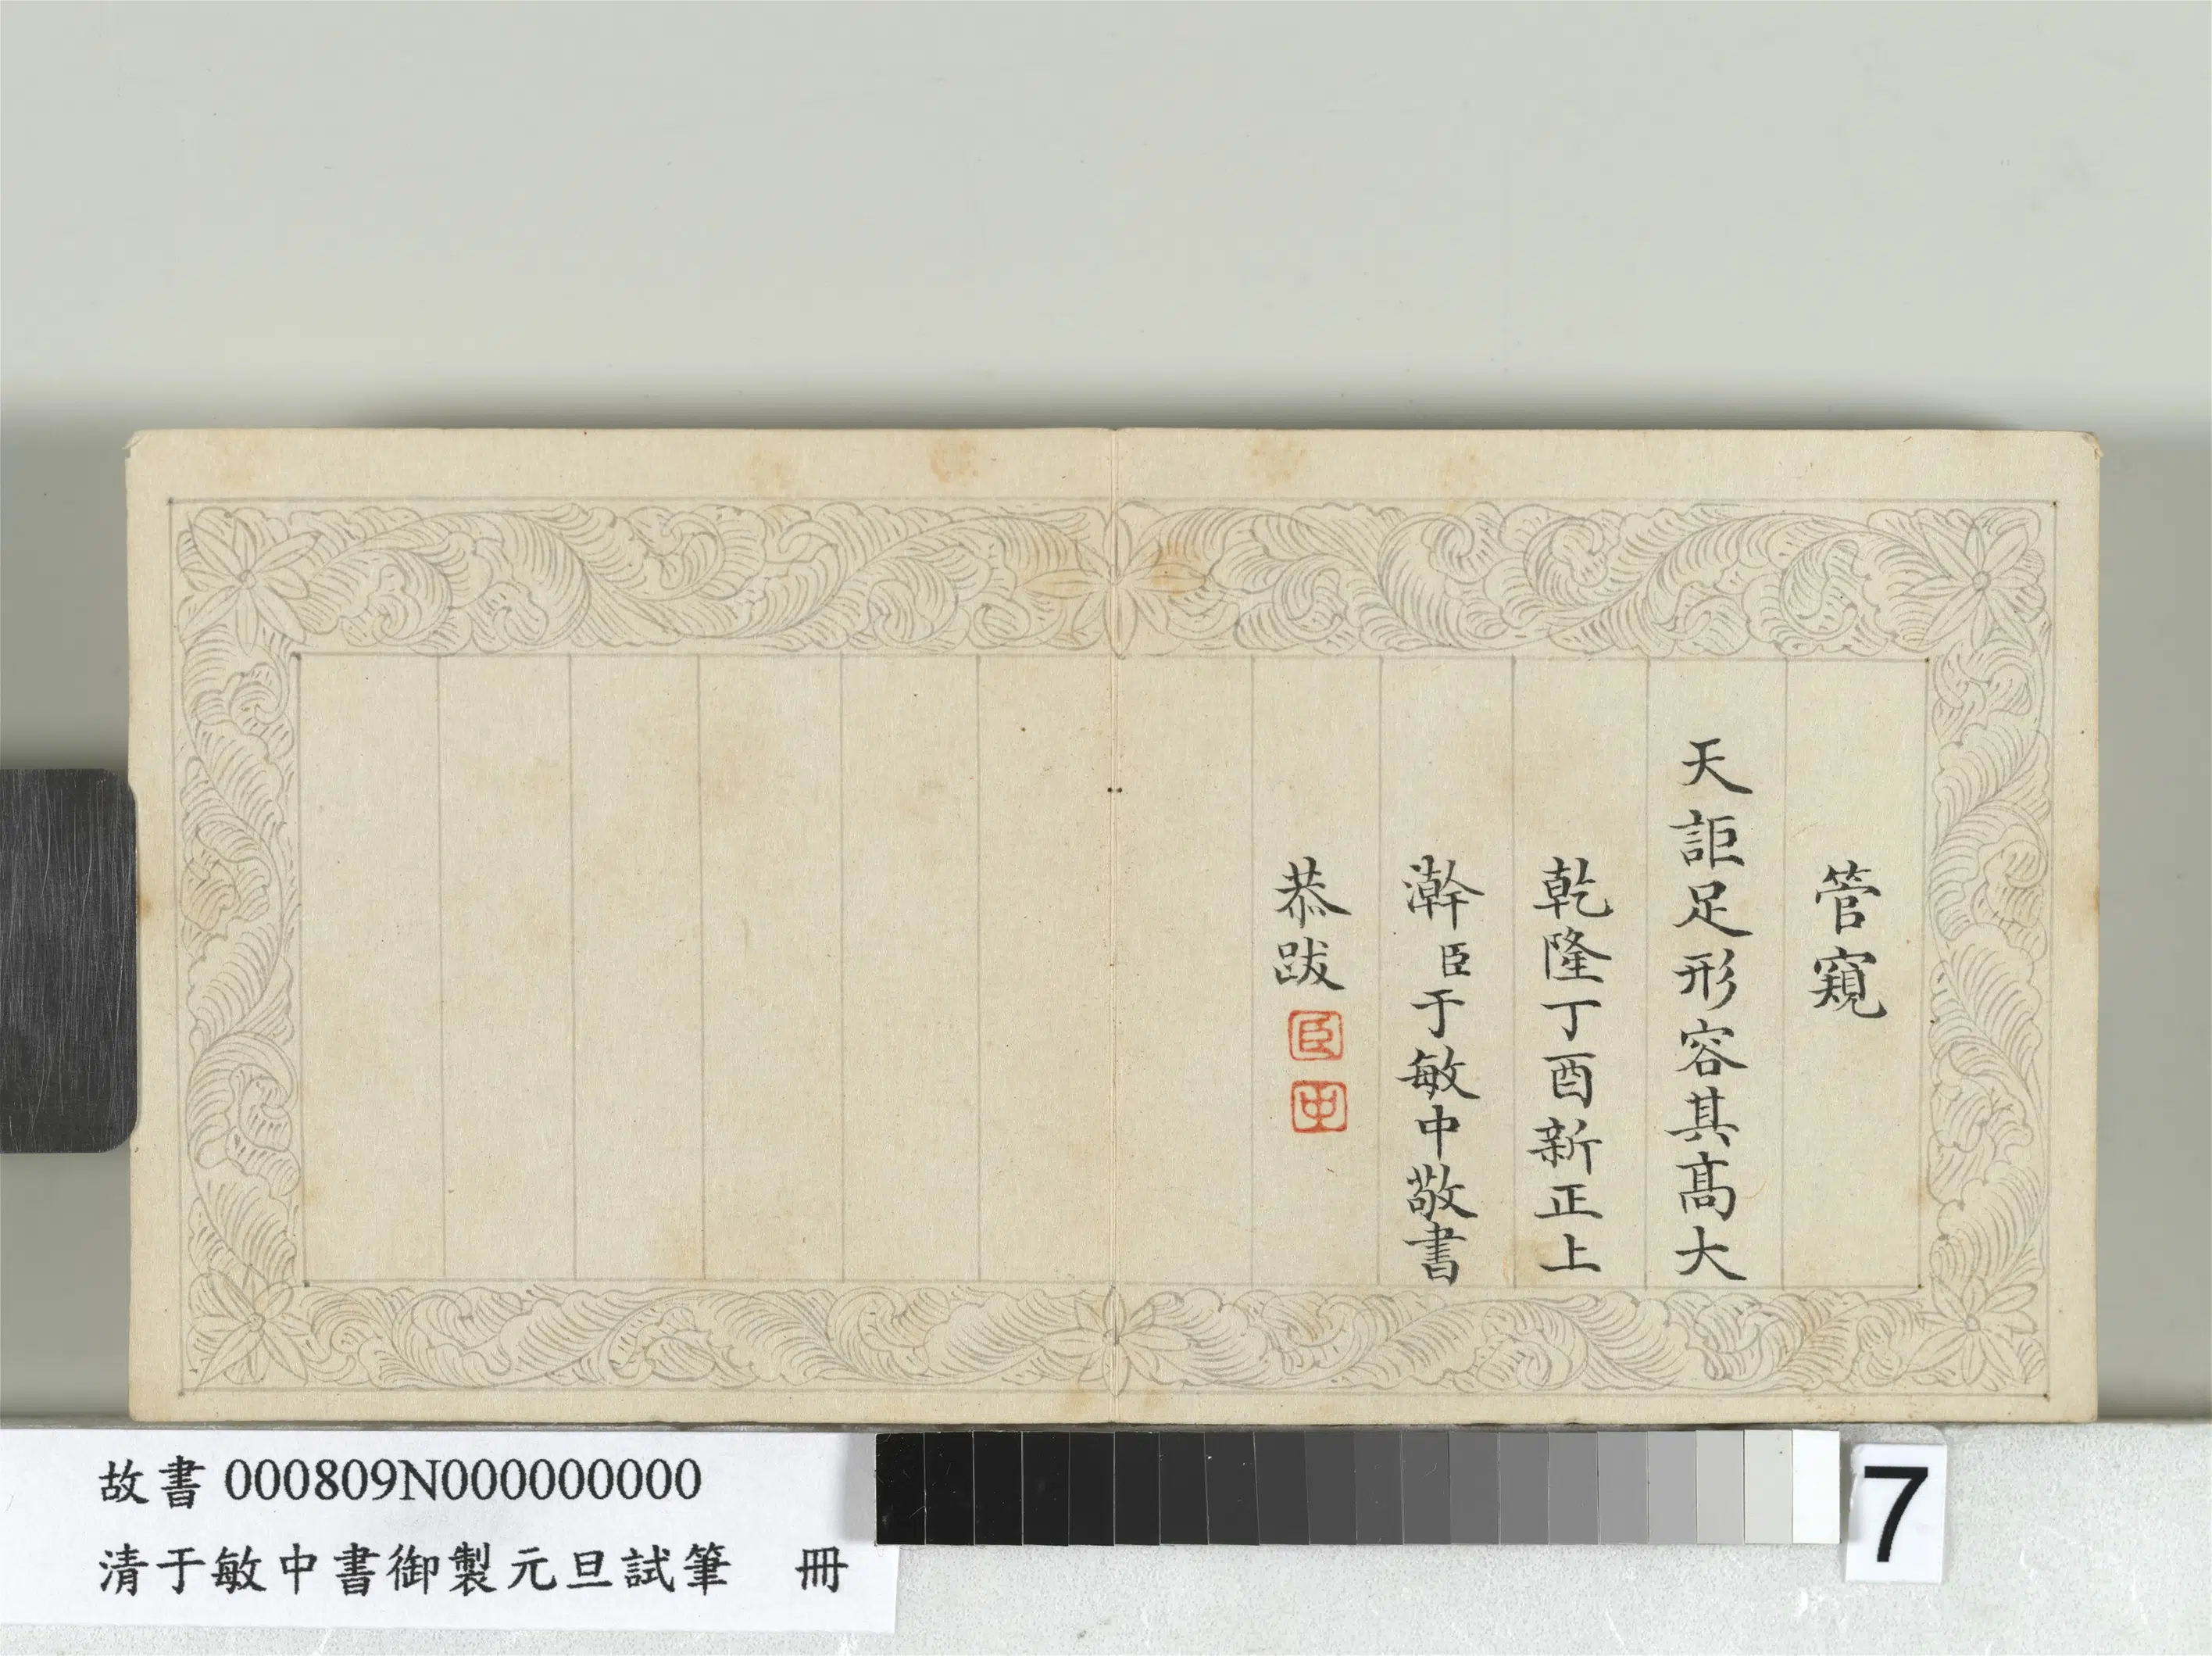 管窺
天詎足形容其高大
乾隆丁酉新正上
澣臣于敏中敬書
恭跋
臣
中
故書000809N000000000
清于敏中書御製元旦試筆　冊
7